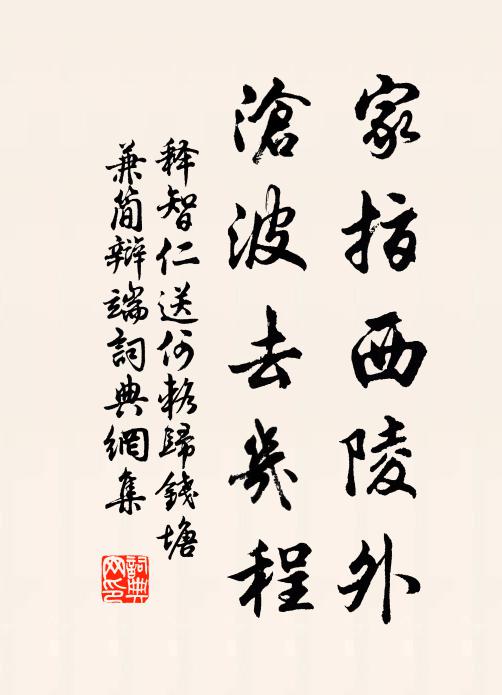 家指西陵外
滄波去幾程
释智仁送何輅歸錢塘
兼簡辯端詞典網集
詞典
网印